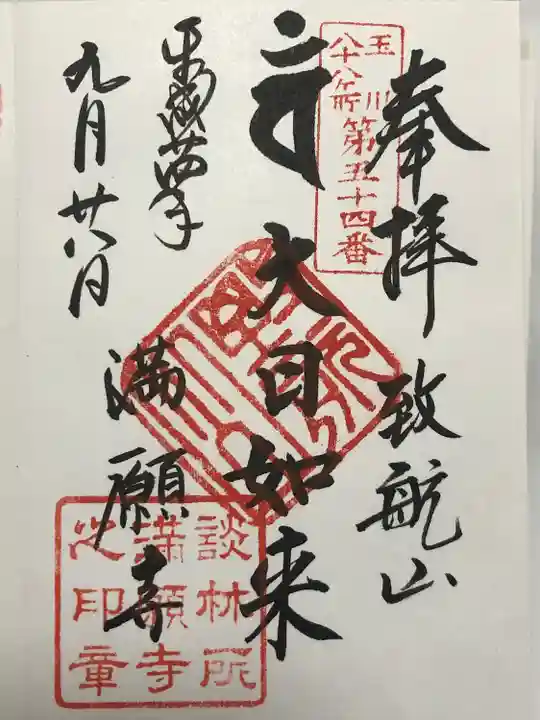 奉拝 致航山
玉川
八十八ヶ所第五十四番
大日如来
満願寺
平成廿四年
九月廿八日
談林所
満願寺
之印章